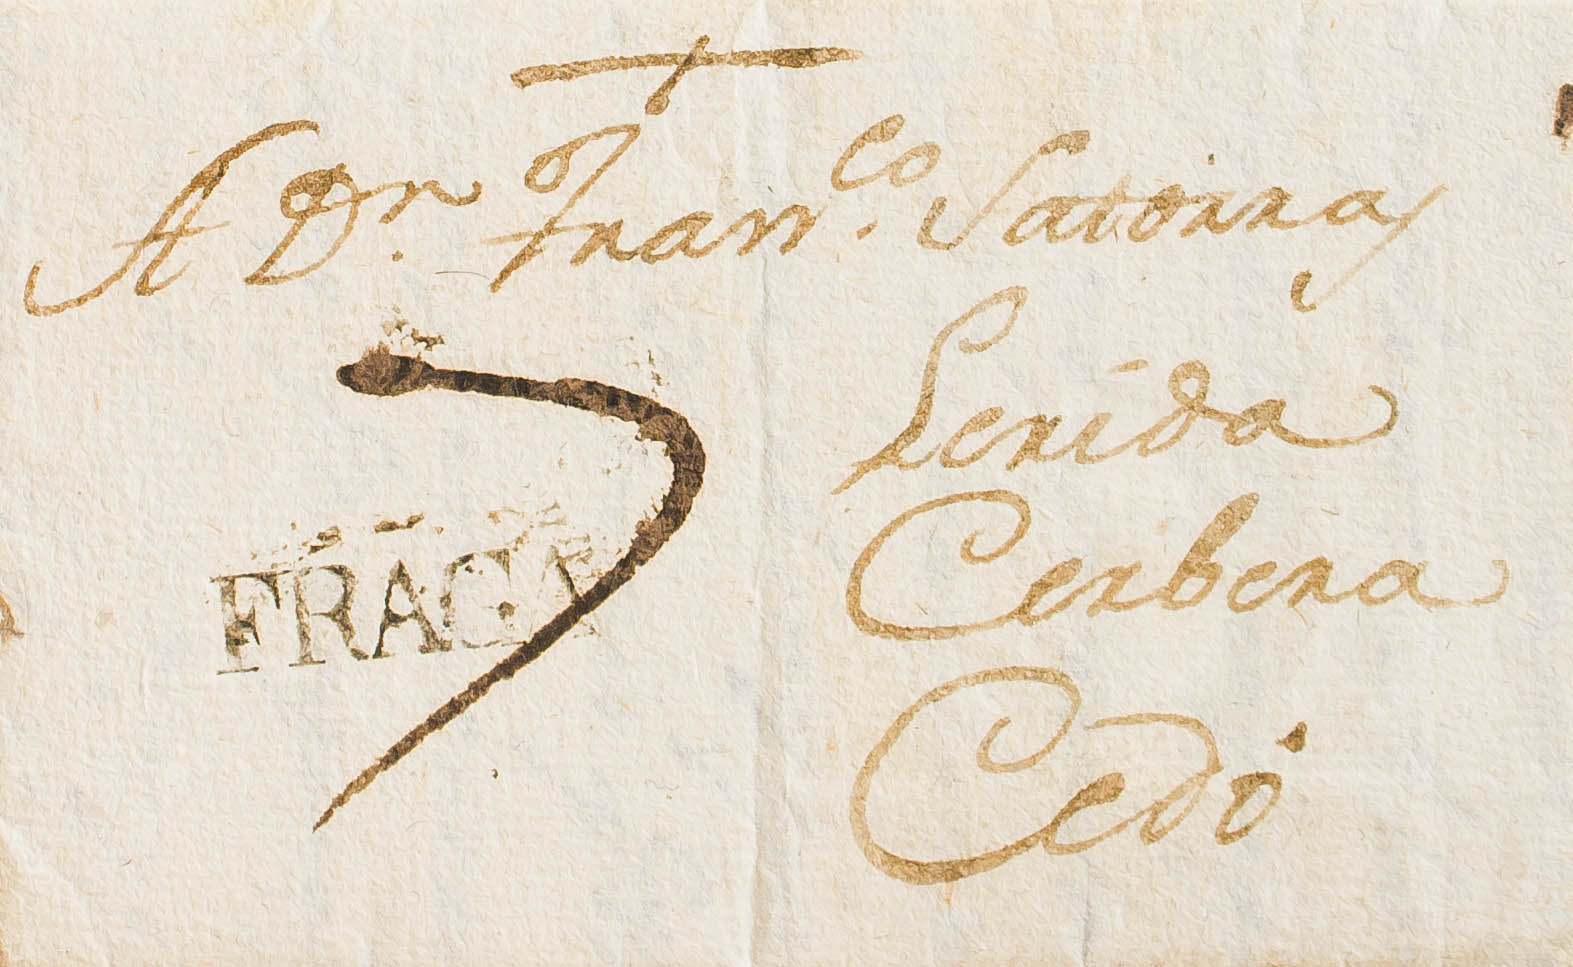 A Dn. Franco. Satorra
Lerida
Cerbera
Cedó
FRAGA